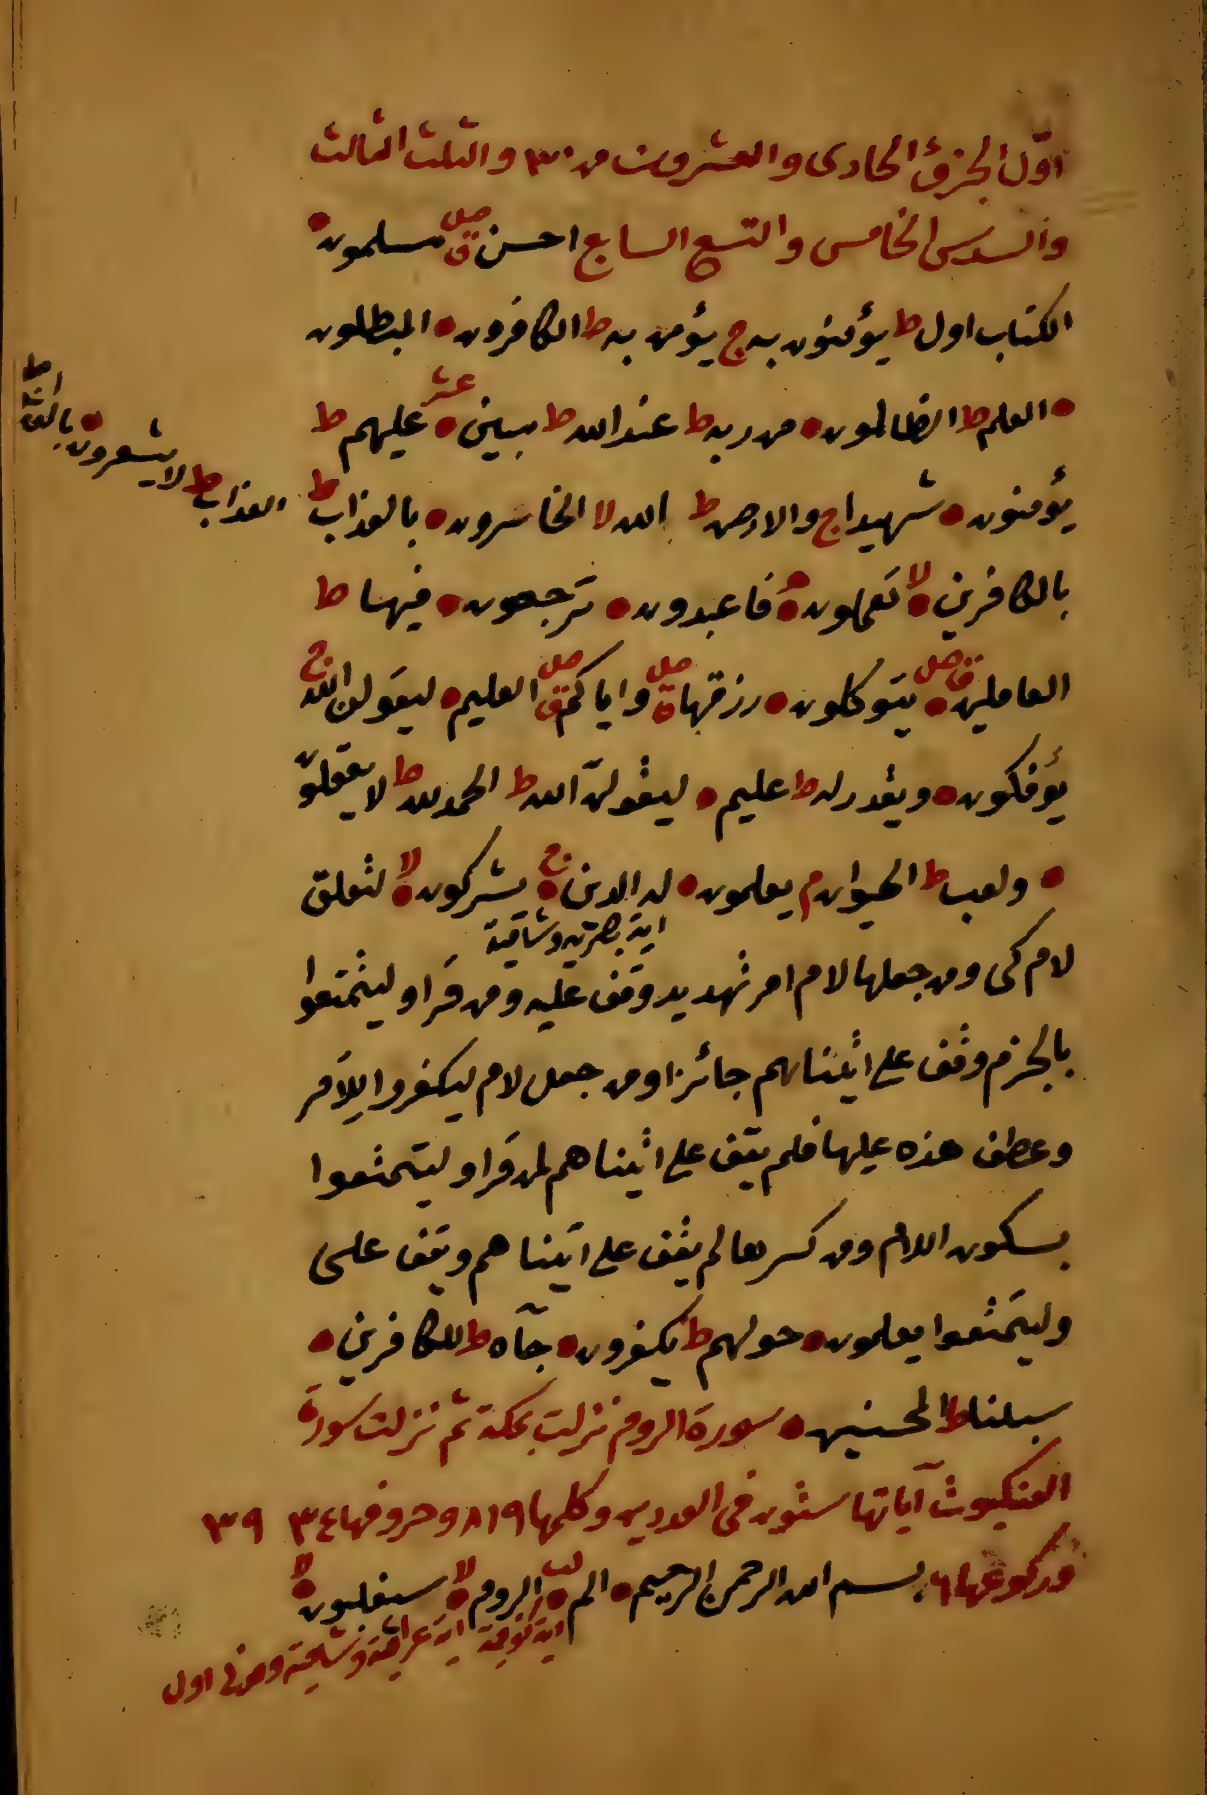 اوّل الجزؤ الحادى والعشرون من ٣٠ والثلث الثالث
والسدس الخامس والتسع السابع احسن ق صل مسلمون •
الكتاب اول ط يؤمنون به ج يؤمن به ط الكافرون • المبطلون
• العلم ط الظالمون • من ربه ط عند الله ط مبين • عشر عليهم ط
يؤمنون • شهيدا ج والارض ط بالله لا الخاسرون • بالعذاب ط العذاب ط لا يشعرون •
بالكافرين • لا تعملون • فاعبدون • ترجعون • فيها ط
العاملين • ق صل يتوكلون • رزقها ة صل واياكم ق صل العليم • ليقولن الله ج
يؤفكون • ويقدر له ط عليم • ليقولن الله ط الحمد لله ط لا يعقلون
• ولعب ط الحيوان م يعلمون • له الدين • ج يشركون • لا لتعلق
اية بصرية وشامية
لام كى ومن جعلها لام امر تهديد وقف عليه ومن قراو ليتمتعوا
بالجزم وقف على اتيناهم جائزا ومن جعل لام ليكفروا للامر
وعطف هذه عليها فلم يقف على اتيناهم لمن قراو ليتمتعوا
بسكون اللام ومن كسرها لم يقف على اتيناهم ويقف على
وليتمتعوا يعلمون • حولهم ط يكفرون • جآه ط للكافرين •
سبلنا ط المحسنين • سورة الروم نزلت بمكة ثم نزلت سورة
العنكبوت آياتها ستون فى العددين وكلمها ٨١٩ وحروفها ٣٤ ٣٩
وركوعها ٦ بسم الله الرحمن الرحيم • الم • لب الروم • لا سيغلبون • لا
اية كوفية اية عراقية وشامية ومدنى اول